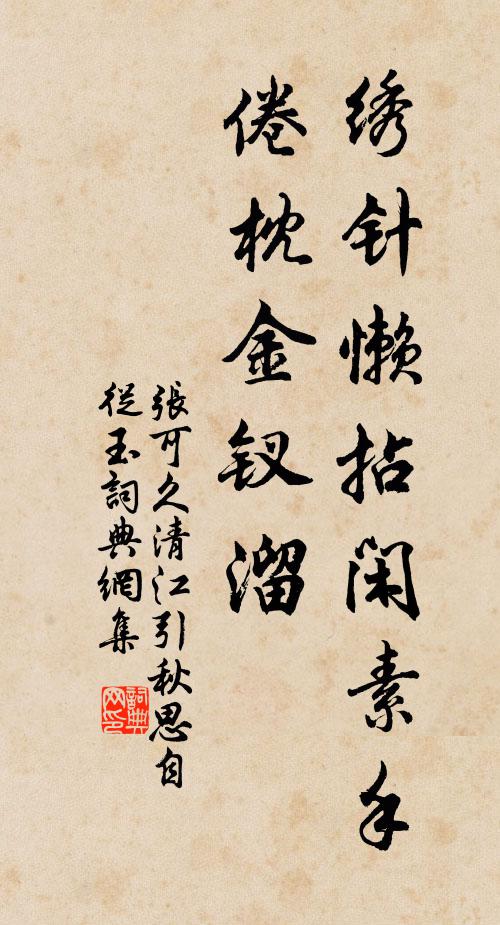 绣针懒拈闲素手
倦枕金钗溜
張可久清江引秋思自
從玉詞典網集
詞典
网印